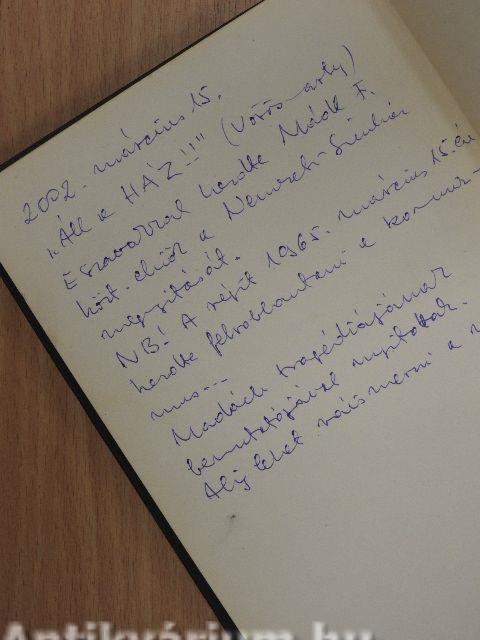 2002. március 15.
„Áll a HÁZ!!" (Vörösmarty)
E szavakkal kezdte Mádl F.
közt. elnök a Nemzeti Színház
megnyitását.
NB! A régit 1965. március 15-én
kezdte felrobbantani a kommu-
nus...
Madách tragédiájának
bemutatójával nyitottak.
Alig lehet ráismerni a
Antikvárium.hu